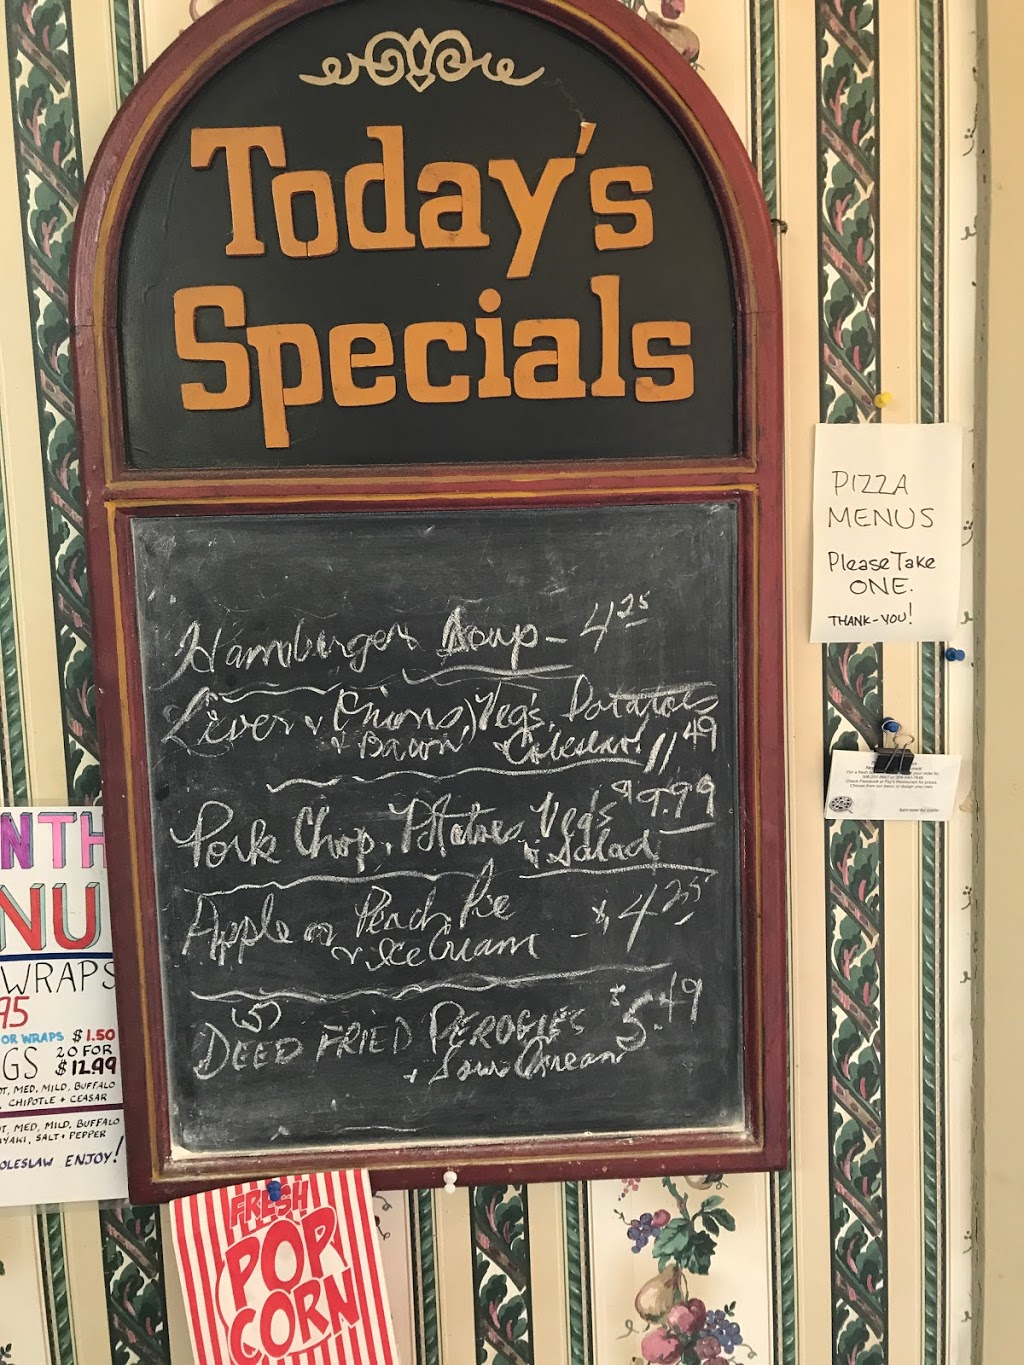 Today's
Specials
Hamburger Soup - 4.25
Liver & Onions, Veg's, Potatoes
& Bacon & Coleslaw 11.49
Pork Chop, Potatoes, Veg's $9.99
& Salad
Apple or Peach Pie
& Ice Cream - $4.25
(5)
DEED FRIED PEROGIES $5.49
+ Sour Cream
PIZZA
MENUS
Please Take
ONE.
THANK-YOU!
NTH
NU
WRAPS
95
OR WRAPS $1.50
GS 20 FOR
$12.99
OT, MED, MILD, BUFFALO
CHIPOTLE + CEASAR
OT, MED, MILD, BUFFALO
YAKI, SALT + PEPPER
OLESLAW ENJOY!
FRESH
POP
CORN